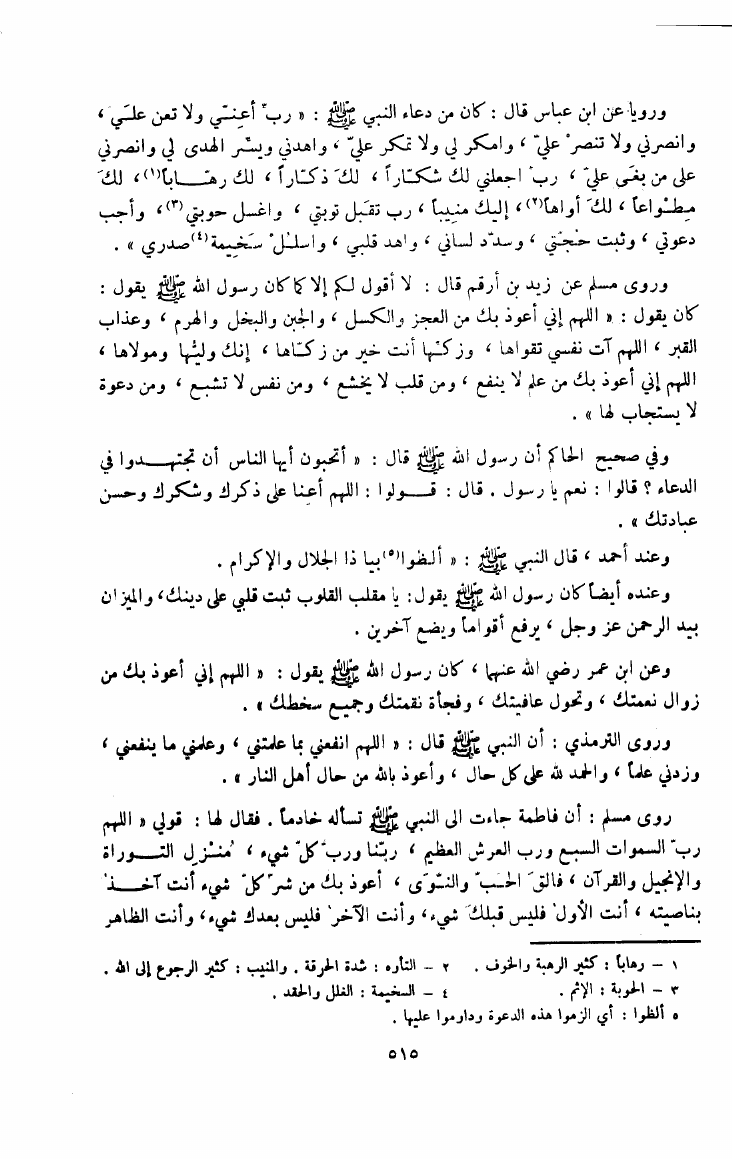 ورويا عن ابن عباس قال : كان من دعاء النبي ﷺ : « ربّ أعنّي ولا تعن عليّ ،
وانصرني ولا تنصرْ عليّ ، وامكر لي ولا تمكر عليّ ، واهدني ويسّر الهدى لي وانصرني
على من بغى عليّ ، ربّ اجعلني لك شكّاراً ، لكَ ذكّاراً ، لك رهّاباً(١) ، لكَ
مِطواعاً ، لكَ أواهاً(٢) ، إليك منيباً ، رب تقبّل توبتي ، واغسل حوبتي(٣) ، وأجب
دعوتي ، وثبت حُجّتي ، وسدّد لساني ، واهد قلبي ، واسللْ سَخيمة(٤) صدري » .
وروى مسلم عن زيد بن أرقم قال : لا أقول لكم إلا كما كان رسول الله ﷺ يقول :
كان يقول : « اللهم إني أعوذ بك من العجز والكسل ، والجبن والبخل والهرم ، وعذاب
القبر ، اللهم آت نفسي تقواها ، وزكّها أنت خير من زكّاها ، إنك وليّها ومولاها ،
اللهم إني أعوذ بك من علم لا ينفع ، ومن قلب لا يخشع ، ومن نفس لا تشبع ، ومن دعوة
لا يستجاب لها » .
وفي صحيح الحاكم أن رسول الله ﷺ قال : « أتحبون أيها الناس أن تجتهدوا في
الدعاء ؟ قالوا : نعم يا رسول . قال : قولوا : اللهم أعنا على ذكرك وشكرك وحسن
عبادتك » .
وعند أحمد ، قال النبي ﷺ : « ألظوا(٥) بيا ذا الجلال والإكرام .
وعنده أيضاً كان رسول الله ﷺ يقول : يا مقلب القلوب ثبت قلبي على دينك ، والميزان
بيد الرحمن عز وجل ، يرفع أقواماً ويضع آخرين .
وعن ابن عمر رضي الله عنهما ، كان رسول الله ﷺ يقول : « اللهم إني أعوذ بك من
زوال نعمتك ، وتحول عافيتك ، وفجأة نقمتك وجميع سخطك » .
وروى الترمذي : أن النبي ﷺ قال : « اللهم انفعني بما علمتني ، وعلمني ما ينفعني ،
وزدني علماً ، والحمد لله على كل حال ، وأعوذ بالله من حال أهل النار » .
روى مسلم : أن فاطمة جاءت الى النبي ﷺ تسأله خادماً . فقال لها : قولي « اللهم
ربّ السموات السبع ورب العرش العظيم ، ربّنا وربّ كلّ شيء ، مُنزل التوراة
والإنجيل والقرآن ، فالقَ الحبّ والنّوَى ، أعوذ بك من شرّ كلّ شيء أنت آخذٌ
بناصيته ، أنت الأولُ فليس قبلكَ شيء ، وأنت الآخرُ فليس بعدك شيء ، وأنت الظاهر
١ – رهاباً : كثير الرهبة والخوف . ٢ – التأره : شدة الحرقة . والمنيب : كثير الرجوع إلى الله .
٣ – الحوبة : الإثم . ٤ – السخيمة : الغلل والحقد .
٥ ألظوا : أي الزموا هذه الدعوة وداوموا عليها .
٥١٥